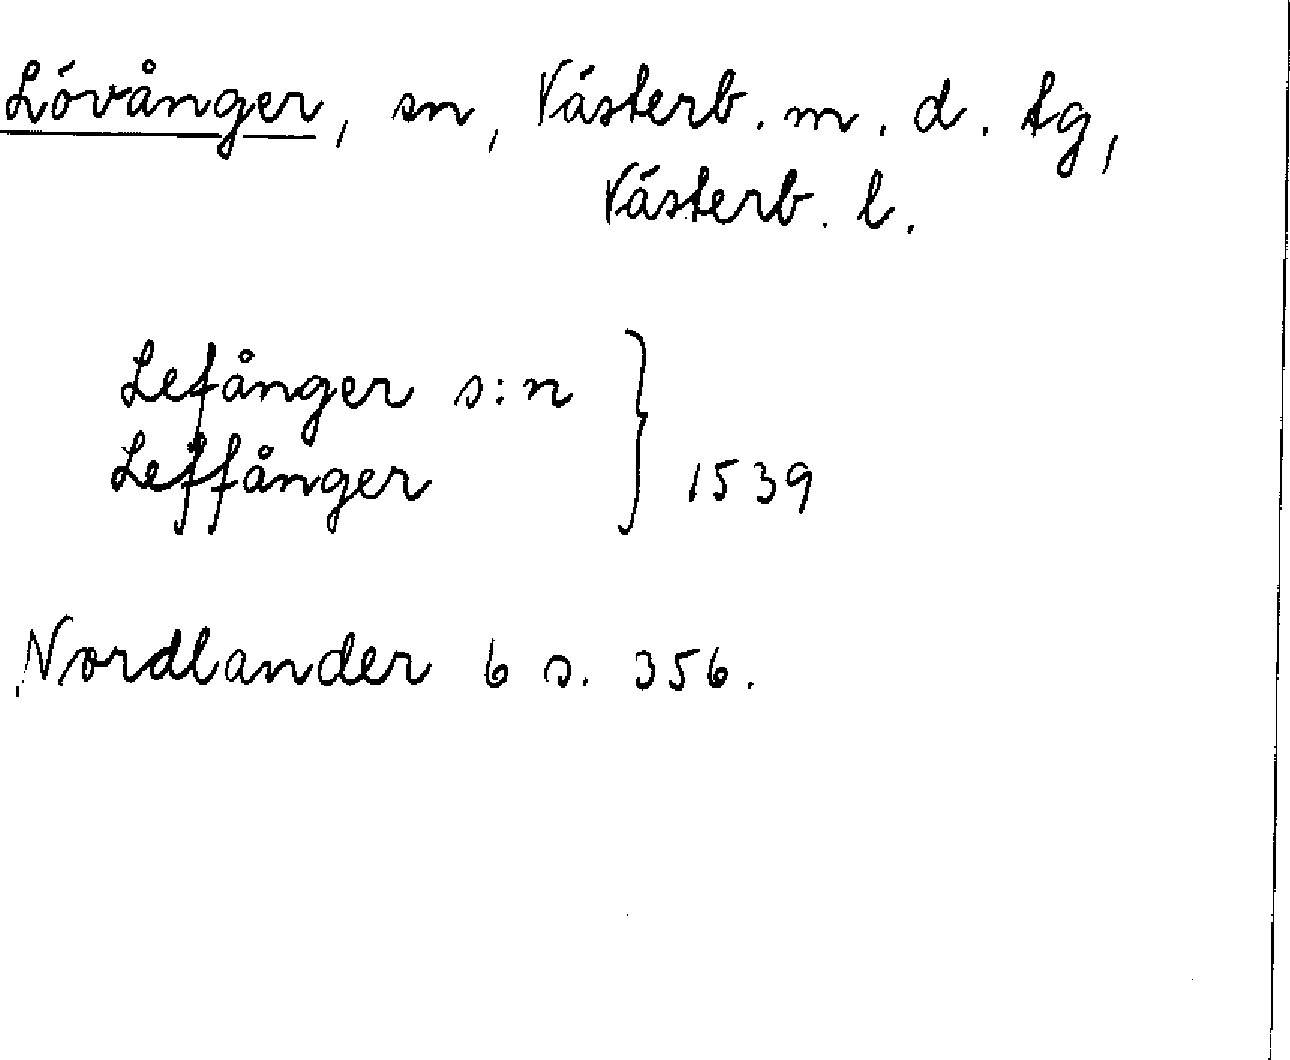 Lövånger, sn, Västerb. m. d. tg,
Västerb. l.
Lefånger s:n
Leffånger } 1539
Nordlander 6 s. 356.